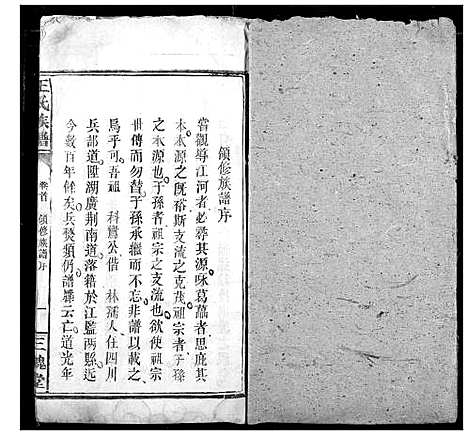 領修族譜序
嘗觀導江河者必尋其源咏葛藟者思庇其
本本源之旣裕斯支流之克茂祖宗者子孫
之本源也子孫者祖宗之支流也欲使祖宗
世傳而勿替子孫承繼而不忘非譜以載之
烏乎可吾祖 科鸞公偕 林 孺人住四川
兵部道陞湖廣荆南道落籍於江監兩縣远
今數百年餘矣兵燹頻仍譜牒云亡道光年
王氏族譜
卷首 領修族譜序 一 三槐堂